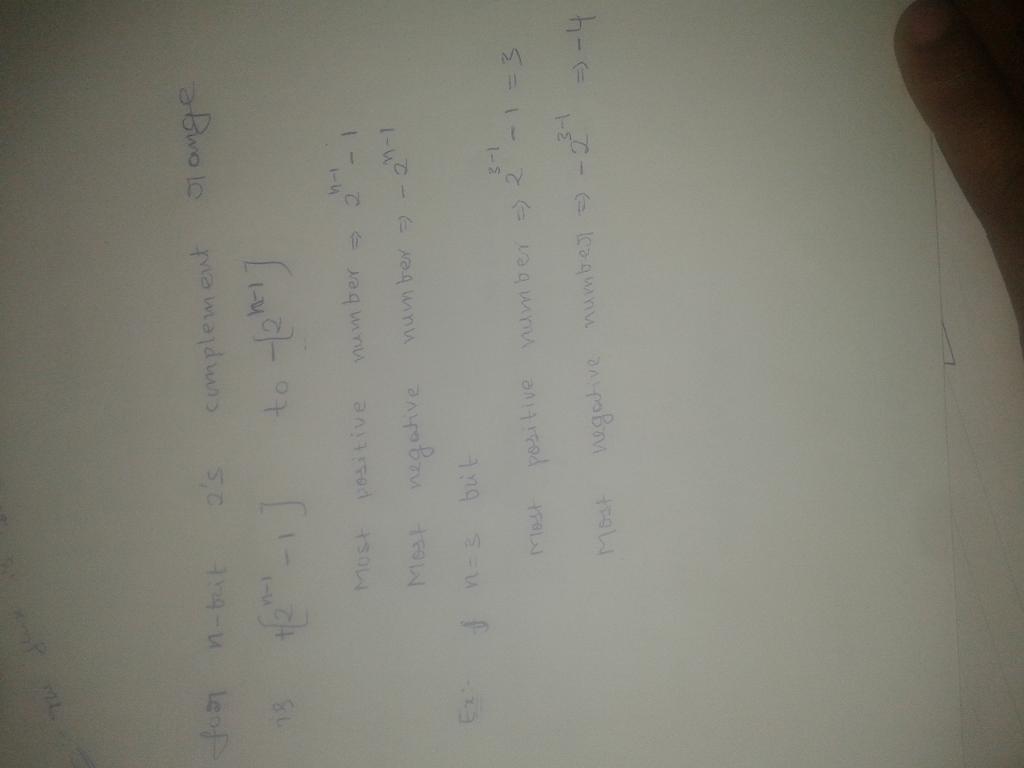 for n-bit 2's complement range
is +[2^{n-1} - 1] to -[2^{n-1}]
Most positive number => 2^{n-1} - 1
Most negative number => - 2^{n-1}
Ex:- if n=3 bit
Most positive number => 2^{3-1} - 1 = 3
Most negative number => - 2^{3-1} => -4